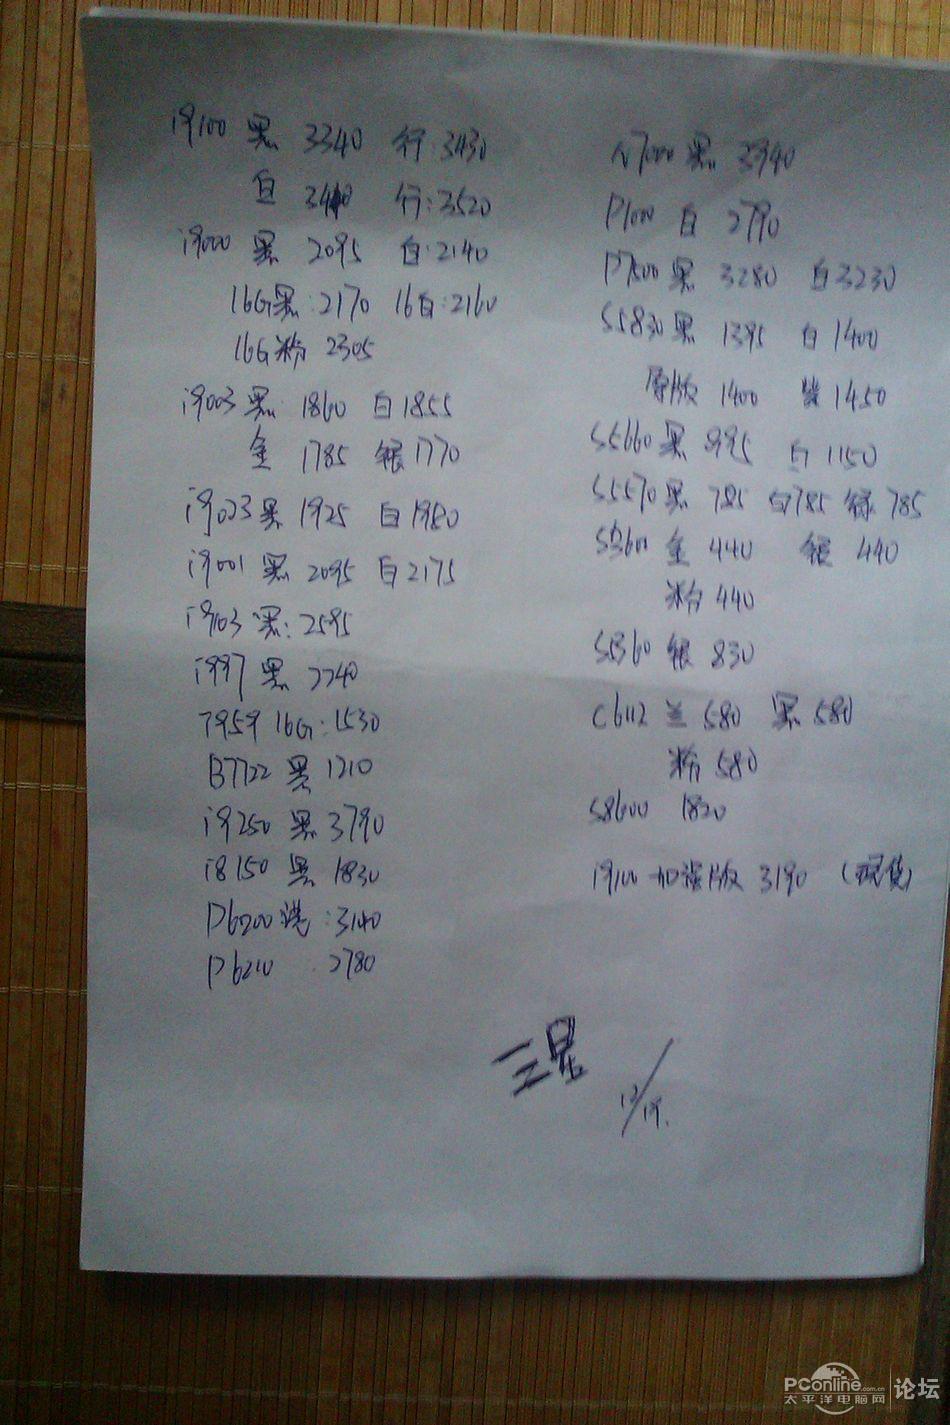 i9100 黑 3340 行:3430
白 3410 行:3520
i9000 黑 2095 白:2140
16G黑:2170 16白:2160
16G粉 2305
i9003黑 1860 白1855
金 1785 银1770
i9023黑 1925 白1950
i9001 黑 2095 白2175
i9103 黑:2595
i997 黑 2240
7959 16G:1530
B7722 黑 1210
i9250 黑 3790
i8150 黑 1830
P6200港:3140
P6210 2780
N7000 黑 3940
P1000 白 2790
P7500 黑 3280 白3230
S5830黑 1395 白 1400
原版 1400 1450
S5660黑 995 白 1150
S5570黑 785 白785 绿785
金 440 银 440
粉 440
银 830
C6112 兰 580 黑 580
粉 580
S8600 1820
i9100 加强版 3190 (现货)
三星
12/19.
PConline.com.cn
太平洋电脑网 论坛